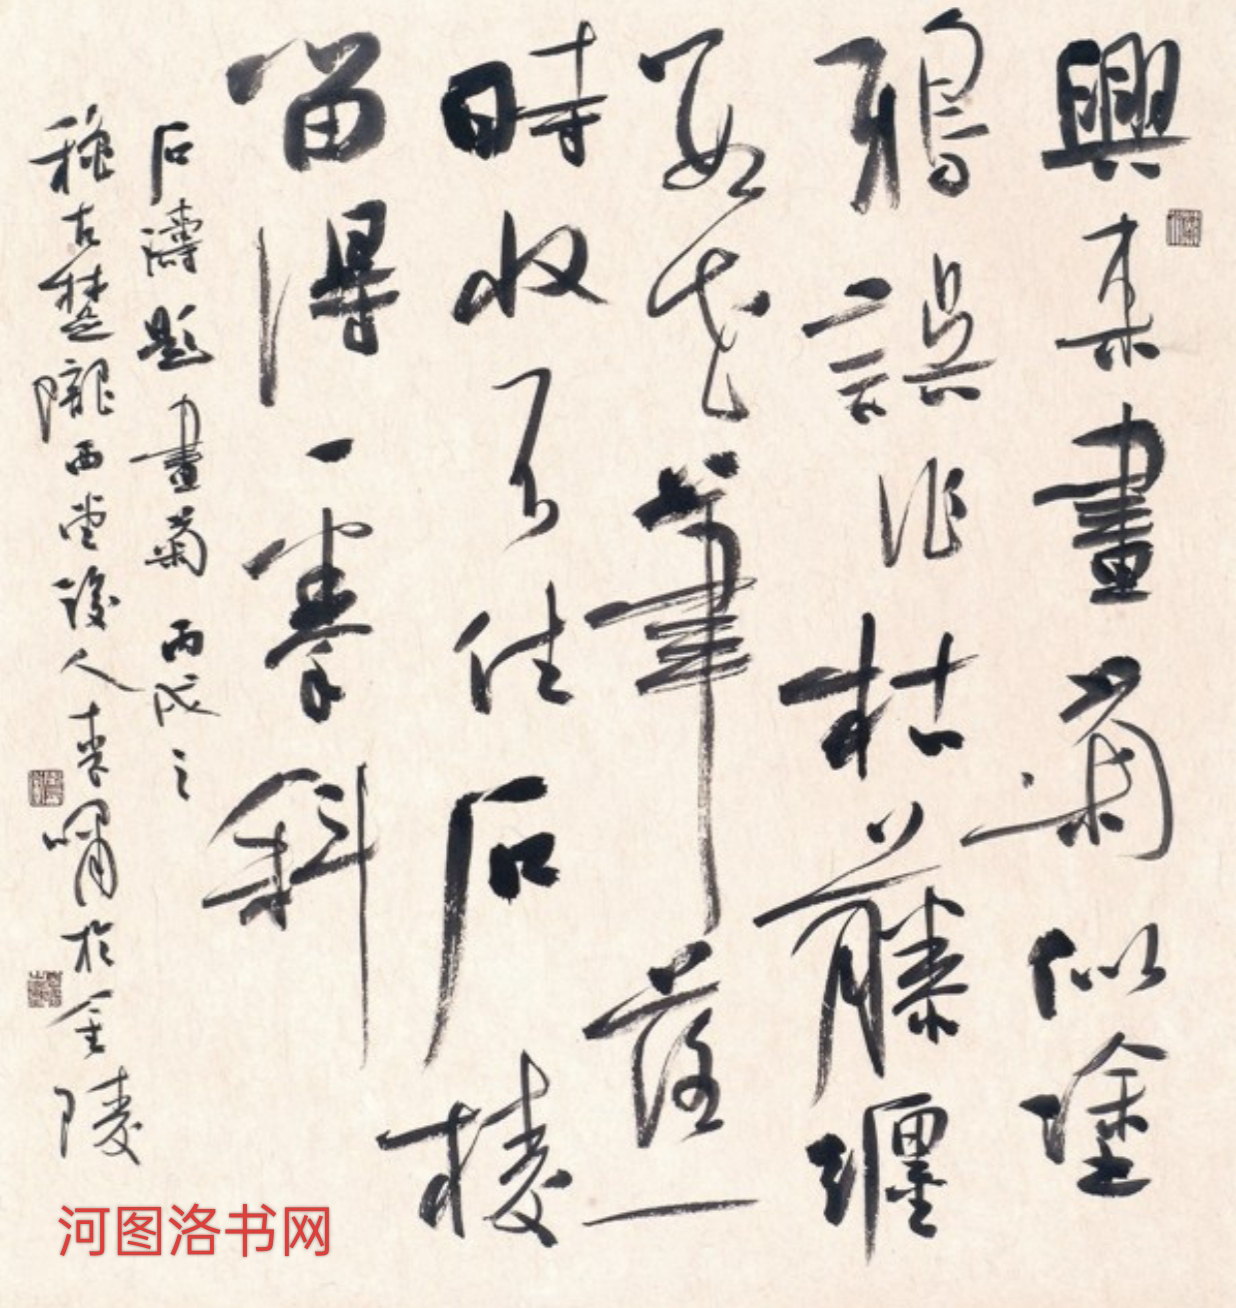 興來畫菊似塗
鴉誤作枯藤纏
數花筆落一
時收不住石棱
留得一拳斜
石濤題畫菊丙戌之
穐古楚隴西堂後人李嘯於金陵
河图洛书网